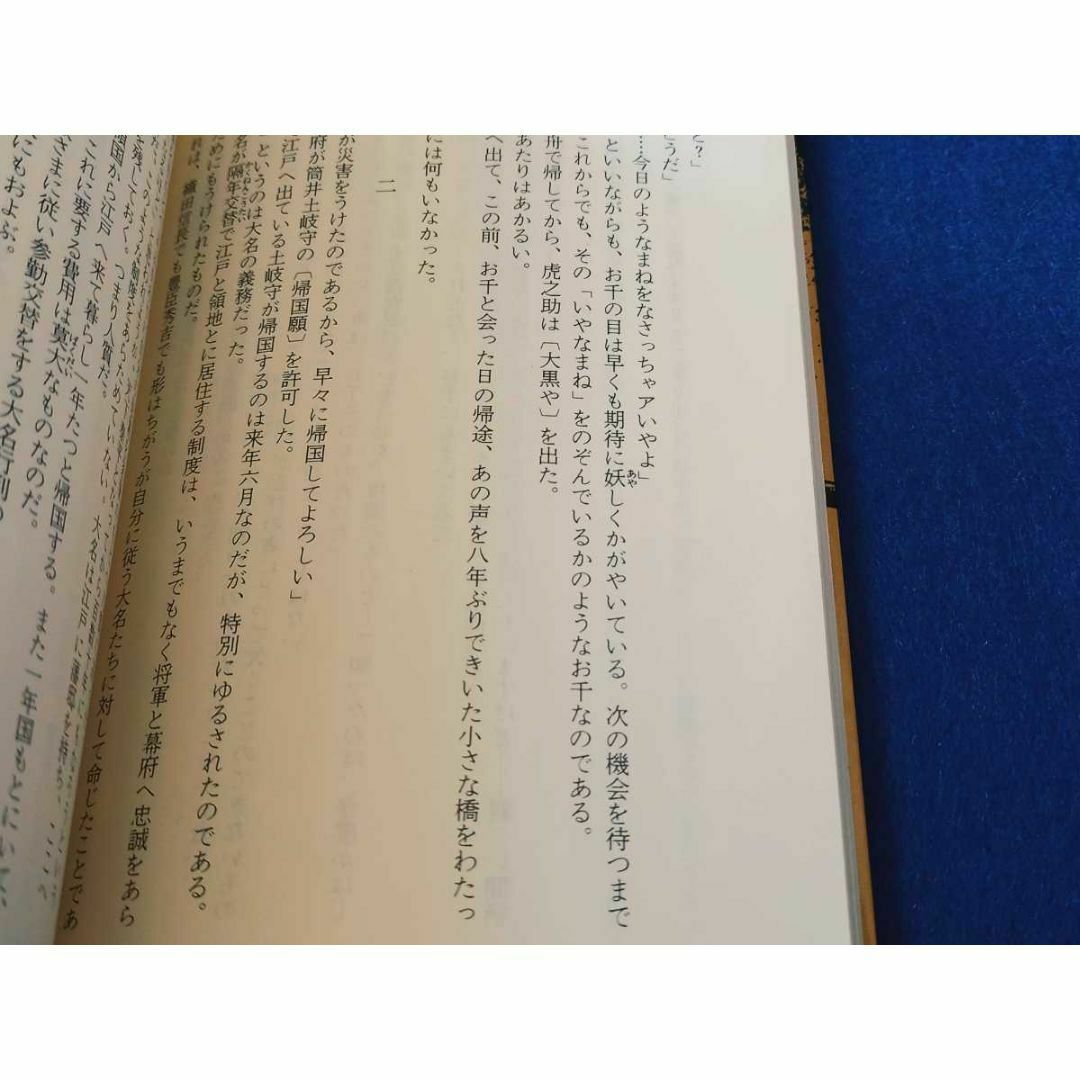 と?」
うだ」
……今日のようなまねをなさっちゃアいやよ」
といいながらも、お千の目は早くも期待に妖しくかがやいている。次の機会を待つまで
これからでも、その「いやなまね」をのぞんでいるかのようなお千なのである。
舟で帰してから、虎之助は〔大黒や〕を出た。
あたりはあかるい。
へ出て、この前、お千と会った日の帰途、あの声を八年ぶりできいた小さな橋をわたっ
には何もいなかった。
二
が災害をうけたのであるから、早々に帰国してよろしい」
府が筒井土岐守の〔帰国願〕を許可した。
江戸へ出ている土岐守が帰国するのは来年六月なのだが、特別にゆるされたのである。
というのは大名の義務だった。
名が隔年交替で江戸と領地とに居住する制度は、いうまでもなく将軍と幕府へ忠誠をあら
ためにもうけられたものだ。
れは、織田信長でも豊臣秀吉でも形はちがうが自分に従う大名たちに対して命じたことであ
大名は江戸に藩邸を
残しておく。つまり人質だ。
国から江戸へ来て暮らし一年たつと帰国する。また一年国もとにいて、
これに要する費用は莫大なものなのだ。
さまに従い参勤交替をする大名行列の
にもおよぶ。